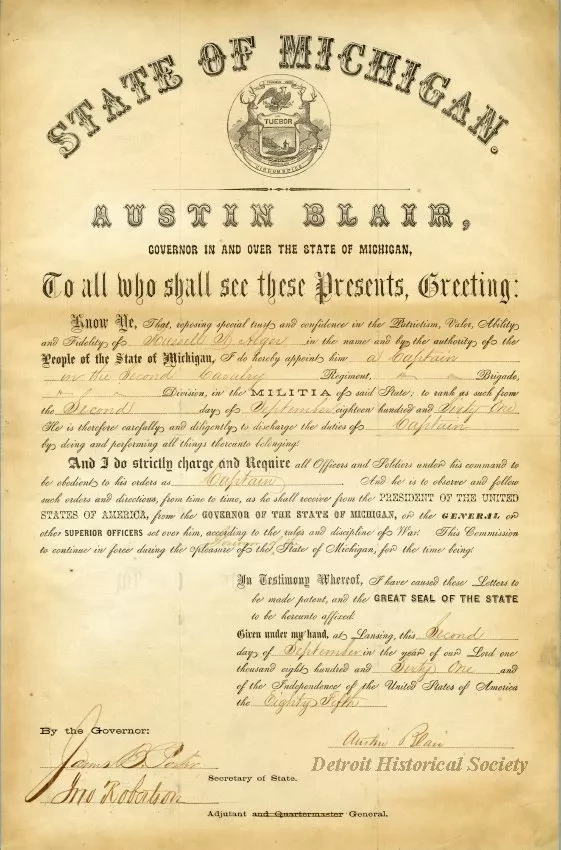 STATE OF MICHIGAN.
TUEBOR
CIRCUMSPICE
AUSTIN BLAIR,
GOVERNOR IN AND OVER THE STATE OF MICHIGAN,
To all who shall see these Presents, Greeting:
Know Ye, That, reposing special trust and confidence in the Patriotism, Valor, Ability
and Fidelity of Russell A Alger in the name and by the authority of the
People of the State of Michigan, I do hereby appoint him a Captain
in the Second Cavalry Regiment, Brigade,
Division, in the MILITIA of said State; to rank as such from
the Second day of September eighteen hundred and Sixty One.
He is therefore carefully and diligently to discharge the duties of Captain
by doing and performing all things thereunto belonging.
And I do strictly charge and Require all Officers and Soldiers under his command to
be obedient to his orders as Captain And he is to observe and follow
such orders and directions, from time to time, as he shall receive from the PRESIDENT OF THE UNITED
STATES OF AMERICA, from the GOVERNOR OF THE STATE OF MICHIGAN, or the GENERAL or
other SUPERIOR OFFICERS set over him, according to the rules and discipline of War. This Commission
to continue in force during the pleasure of the State of Michigan, for the time being.
In Testimony Whereof, I have caused these Letters to
be made patent, and the GREAT SEAL OF THE STATE
to be hereunto affixed.
Given under my hand, at Lansing, this Second
day of September in the year of our Lord one
thousand eight hundred and Sixty One and
of the Independence of the United States of America
the Eighty Fifth
By the Governor:
Austin Blair
Detroit Historical Society
James B. Porter
Secretary of State.
Jno Robertson
Adjutant and Quartermaster General.